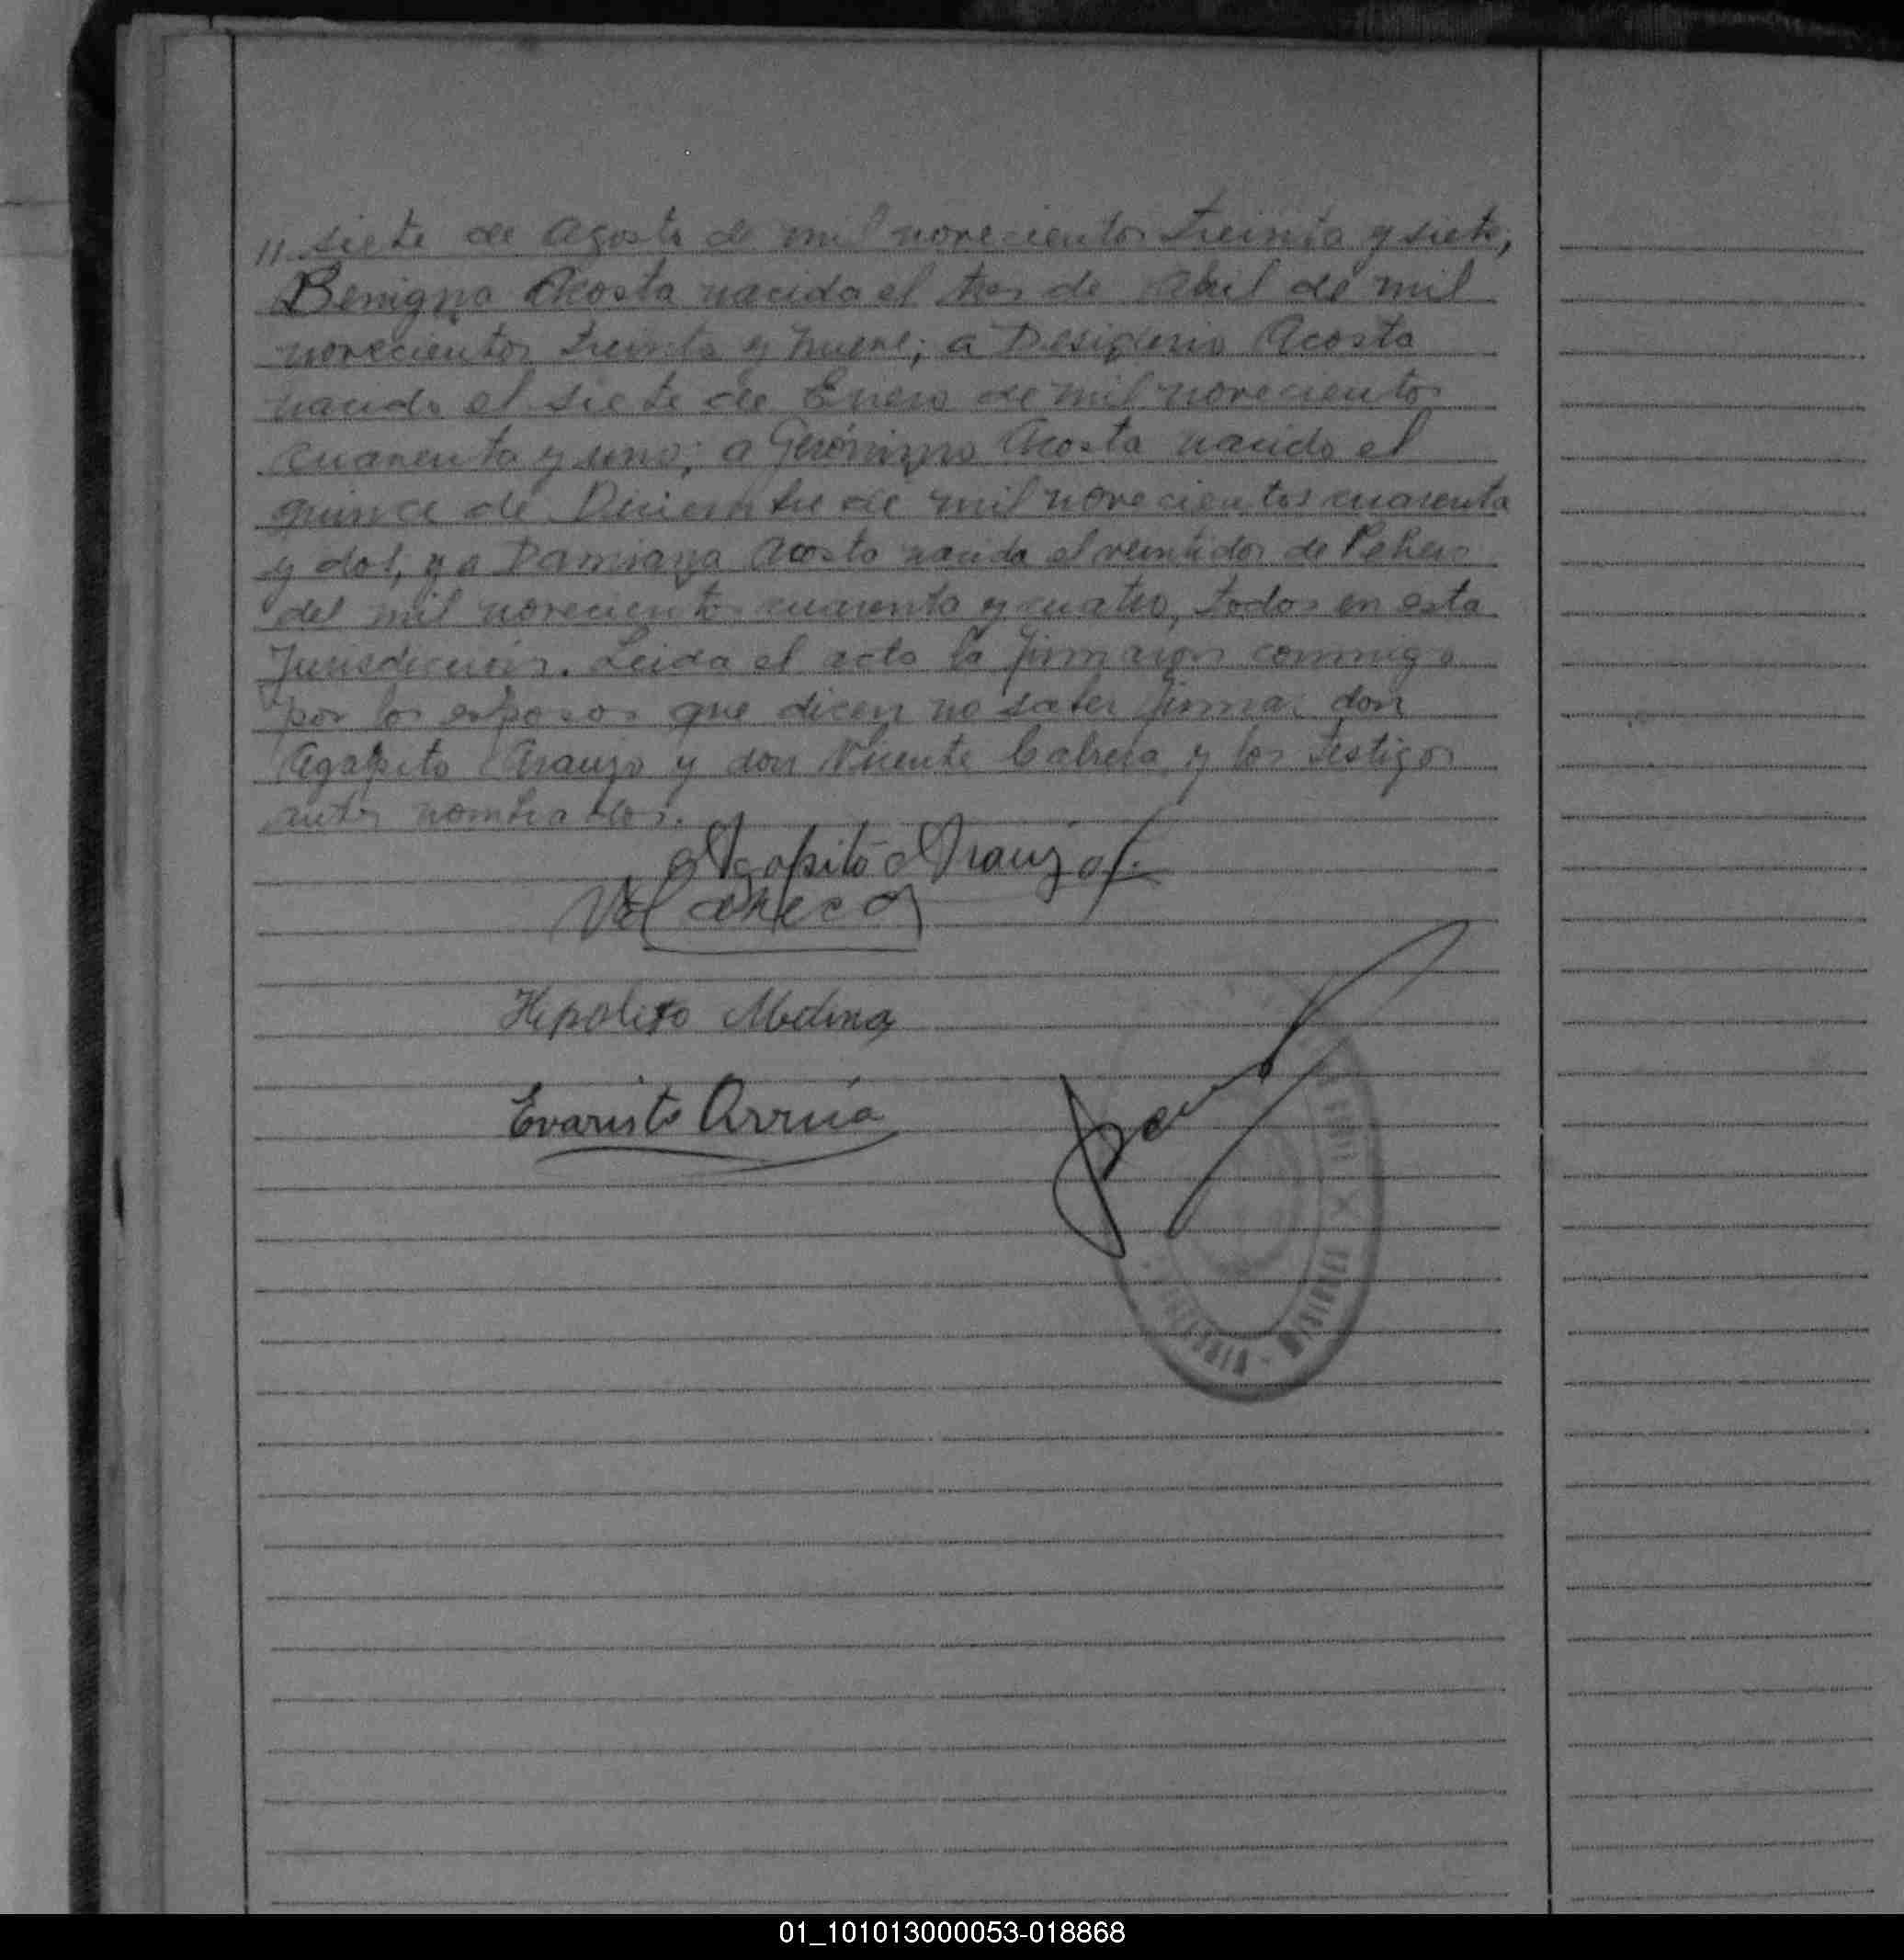 " siete de Agosto de mil novecientos treinta y siete,
Benigna Acosta nacida el tres de Abril de mil
novecientos treinta y nueve; a Desiderio Acosta
nacido el siete de Enero de mil novecientos
cuarenta y uno; a Gerónimo Acosta nacido el
quince de Diciembre de mil novecientos cuarenta
y dos, y a Damiana Acosta nacida el veintidos de Febrero
del mil novecientos cuarenta y cuatro, todos en esta
Jurisdicción. Leida el acta la firmaron conmigo
por los esposos que dicen no saber firmar don
Agapito Araujo y don Vicente Cabrera y los testigos
antes nombrados.
Agapito Araujo f.
Hipolito Medina
Evaristo Arrúa
01_101013000053-018868